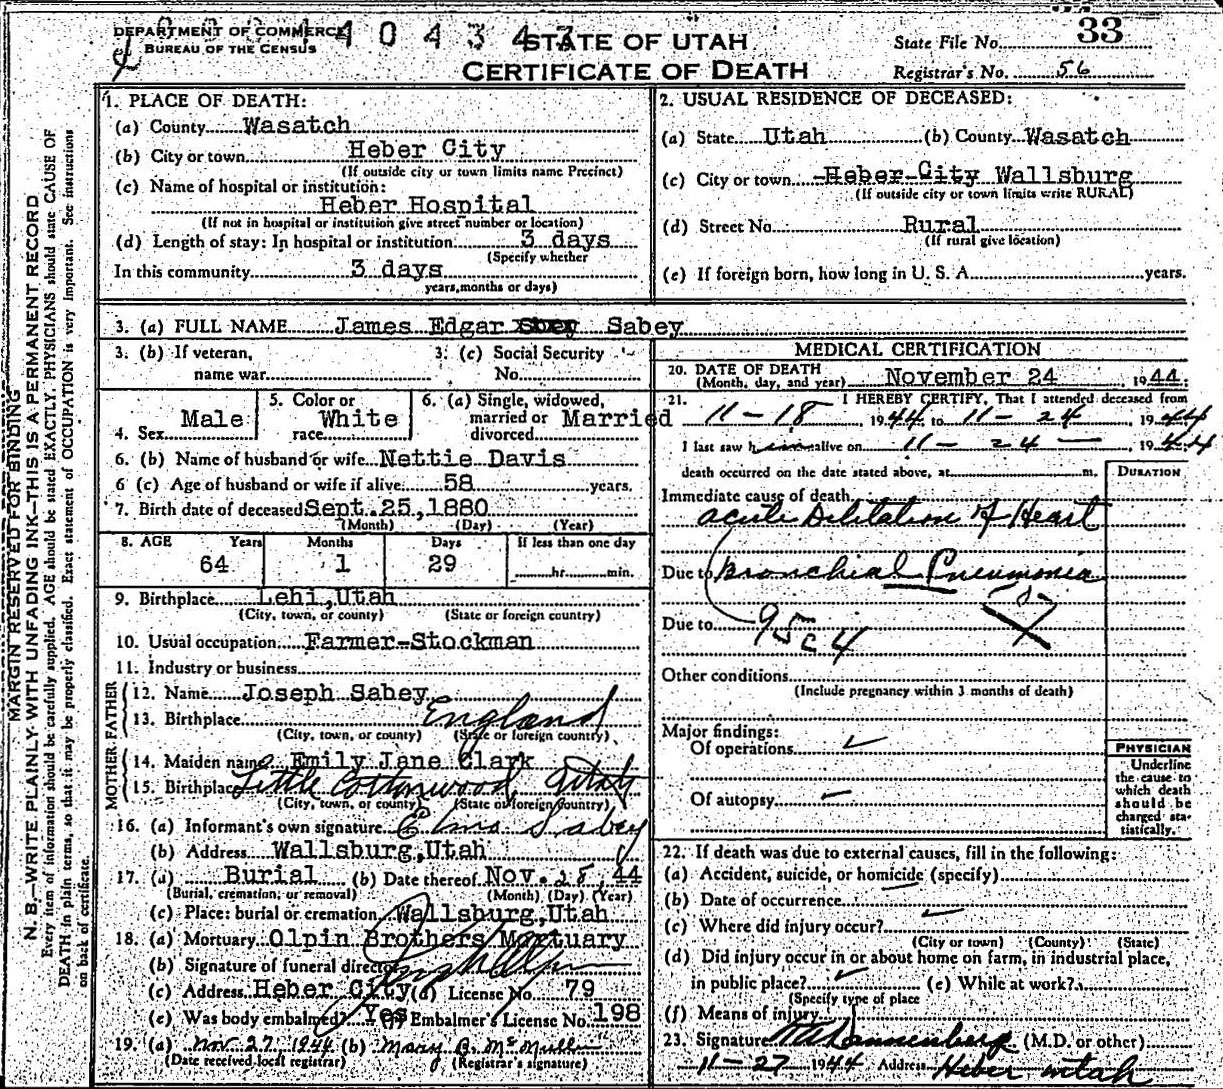 DEPARTMENT OF COMMERCE
BUREAU OF THE CENSUS
STATE OF UTAH
CERTIFICATE OF DEATH
State File No. 33
Registrar's No. 56
MARGIN RESERVED FOR BINDING
N. B.—WRITE PLAINLY WITH UNFADING INK—THIS IS A PERMANENT RECORD
Every item of information should be carefully supplied. AGE should be stated EXACTLY. PHYSICIANS should state CAUSE OF
DEATH in plain terms, so that it may be properly classified. Exact statement of OCCUPATION is very important. See instructions
on back of certificate.
1. PLACE OF DEATH:
(a) County Wasatch
(b) City or town Heber City
(If outside city or town limits name Precinct)
(c) Name of hospital or institution:
Heber Hospital
(If not in hospital or institution give street number or location)
(d) Length of stay: In hospital or institution 3 days
(Specify whether
In this community 3 days
years, months or days)
2. USUAL RESIDENCE OF DECEASED:
(a) State Utah (b) County Wasatch
(c) City or town Heber City Wallsburg
(If outside city or town limits write RURAL)
(d) Street No. Rural
(If rural give location)
(e) If foreign born, how long in U. S. A. years.
3. (a) FULL NAME James Edgar Sabey
3. (b) If veteran,
name war
3. (c) Social Security
No.
4. Sex Male
5. Color or
race White
6. (a) Single, widowed,
married or Married
divorced
6. (b) Name of husband or wife Nettie Davis
6 (c) Age of husband or wife if alive 58 years.
7. Birth date of deceased Sept. 25, 1880
(Month) (Day) (Year)
8. AGE Years Months Days If less than one day
64 1 29 hr. min.
9. Birthplace Lehi, Utah
(City, town, or county) (State or foreign country)
10. Usual occupation Farmer-Stockman
11. Industry or business
FATHER
12. Name Joseph Sabey
13. Birthplace England
(City, town, or county) (State or foreign country)
MOTHER
14. Maiden name Emily Jane Clark
15. Birthplace Little Cottonwood, Utah
(City, town, or county) (State or foreign country)
16. (a) Informant's own signature Sabey
(b) Address Wallsburg, Utah
17. (a) Burial (b) Date thereof Nov. 28, 44
(Burial, cremation, or removal) (Month) (Day) (Year)
(c) Place: burial or cremation Wallsburg, Utah
18. (a) Mortuary Olpin Brothers Mortuary
(b) Signature of funeral director
(c) Address Heber City (d) License No. 79
(e) Was body embalmed? Yes (f) Embalmer's License No. 198
19. (a) Nov 27 1944 (b) Mary B. McMullin
(Date received local registrar) (Registrar's signature)
MEDICAL CERTIFICATION
20. DATE OF DEATH
(Month, day, and year) November 24 1944.
21. I HEREBY CERTIFY, That I attended deceased from
11-18 1944 to 11-24 1944
I last saw him alive on 11-24 1944
death occurred on the date stated above, at m.
DURATION
Immediate cause of death
acute Dilitation of Heart
Due to Bronchial Pneumonia
Due to 95c4
Other conditions
(Include pregnancy within 3 months of death)
Major findings:
Of operations
Of autopsy
PHYSICIAN
Underline
the cause to
which death
should be
charged sta-
tistically.
22. If death was due to external causes, fill in the following:
(a) Accident, suicide, or homicide (specify)
(b) Date of occurrence
(c) Where did injury occur?
(City or town) (County) (State)
(d) Did injury occur in or about home on farm, in industrial place,
in public place? (e) While at work?
(Specify type of place
(f) Means of injury
23. Signature Dannenberg (M.D. or other)
11-27 1944 Address Heber utah